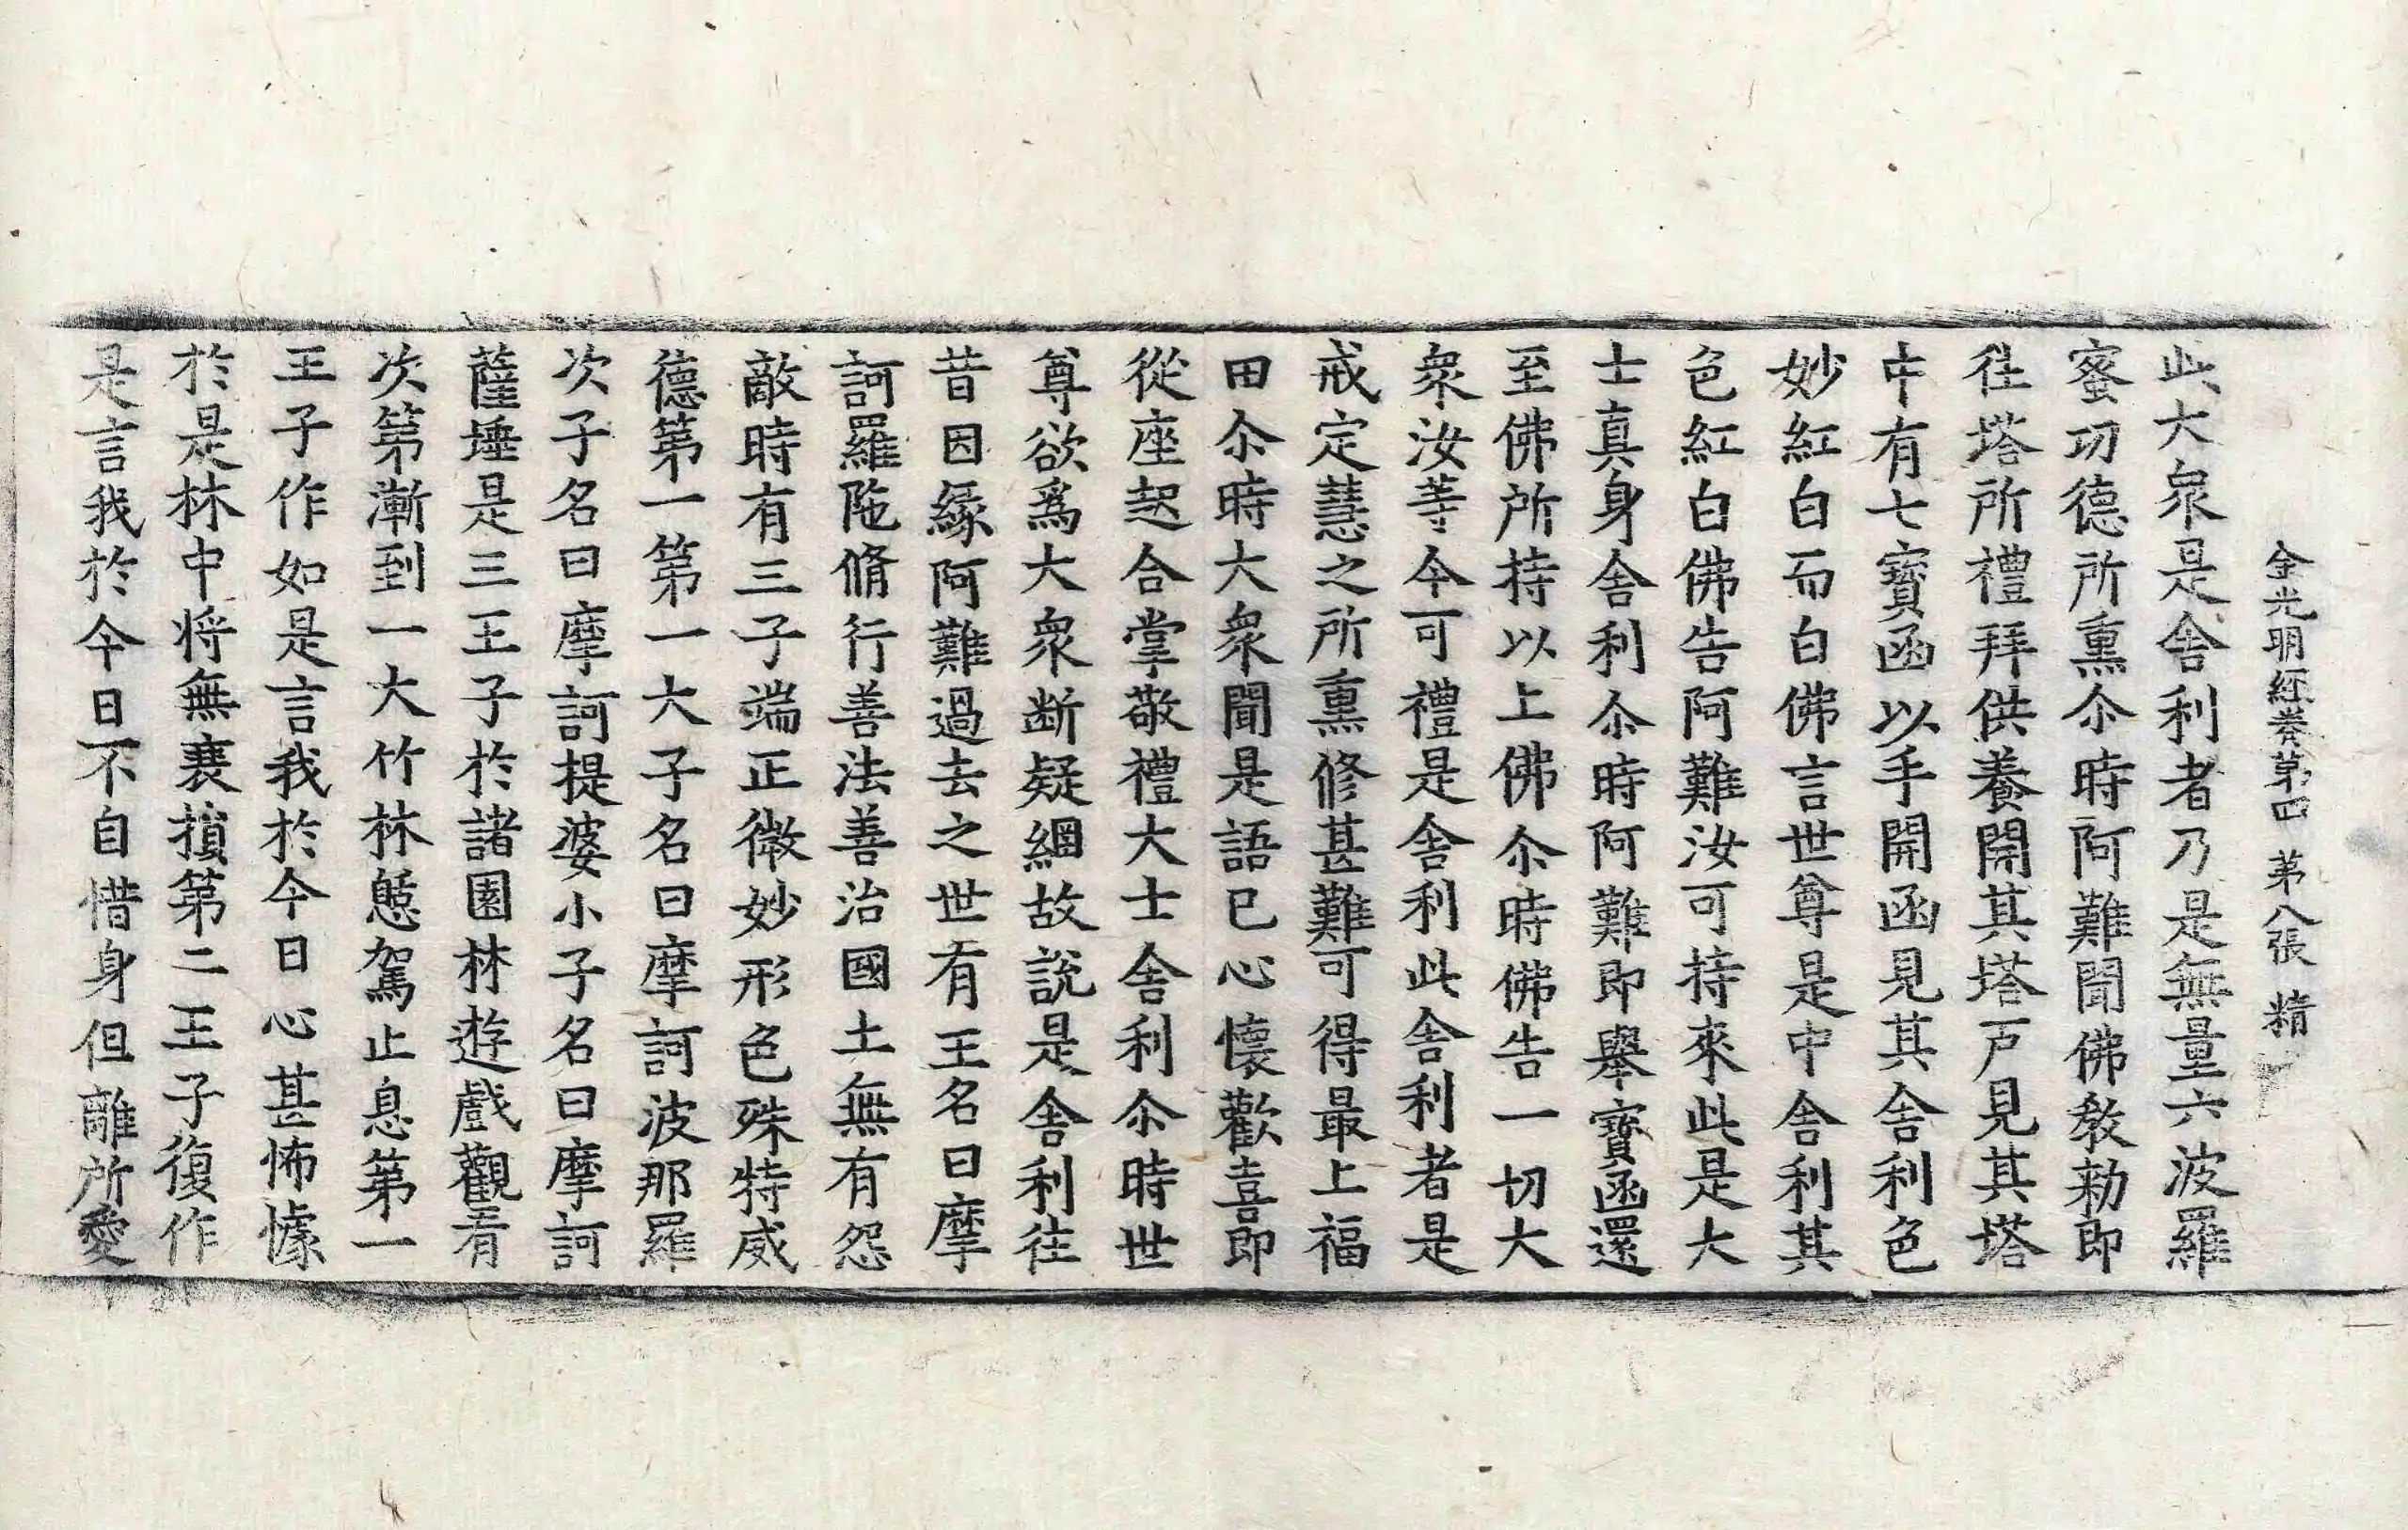 金光明經卷第四 第八張 精
此大衆是舍利者乃是無量六波羅
蜜功德所熏尒時阿難聞佛教勑即
往塔所禮拜供養開其塔戸見其塔
中有七寶函以手開函見其舍利色
妙紅白而白佛言世尊是中舍利其
色紅白佛告阿難汝可持來此是大
士真身舍利尒時阿難即舉寶函還
至佛所持以上佛尒時佛告一切大
衆汝等今可禮是舍利此舍利者是
戒定慧之所熏修甚難可得最上福
田尒時大衆聞是語已心懷歡喜即
從座起合掌敬禮大士舍利尒時世
尊欲爲大衆断疑網故説是舍利往
昔因縁阿難過去之世有王名曰摩
訶羅陁脩行善法善治國土無有怨
敵時有三子端正微妙形色殊特威
德第一第一大子名曰摩訶波那羅
次子名曰摩訶提婆小子名曰摩訶
薩埵是三王子於諸園林遊戲觀看
次第漸到一大竹林憩駕止息第一
王子作如是言我於今日心甚怖懅
於是林中将無衰損第二王子復作
是言我於今日不自惜身但離所愛